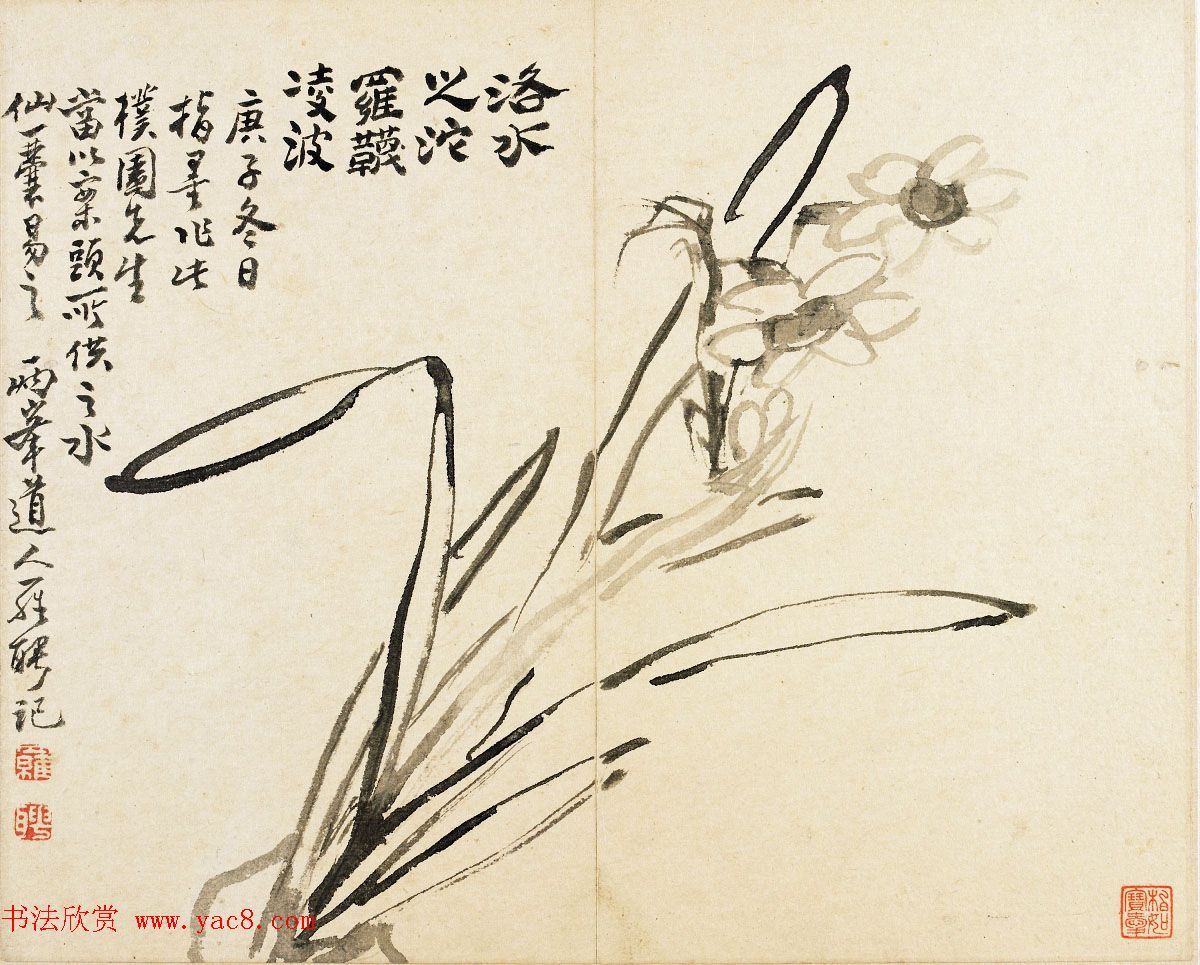 洛水
之沱
羅韈
凌波
庚子冬日
指墨作此
樸園先生
當以案頭所供之水
仙一囊易之 兩峯道人羅聘記
羅
聘
書法欣赏 www.yac8.com